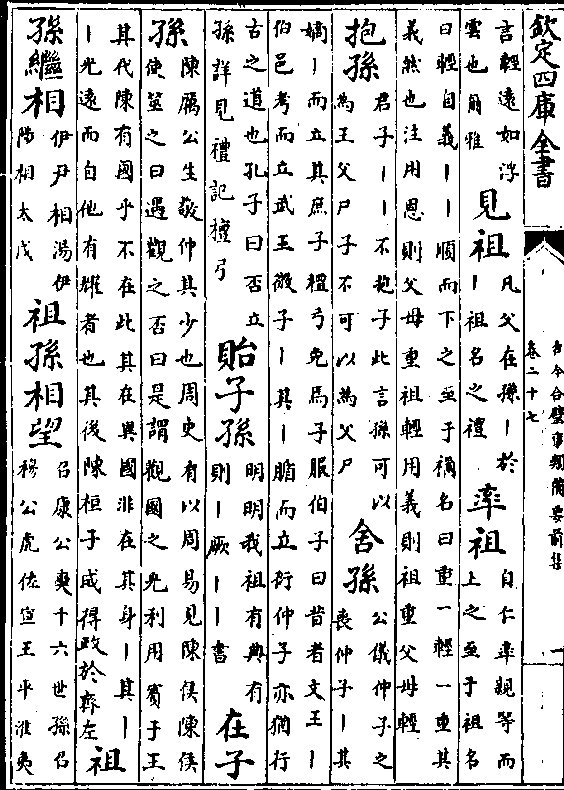 欽定四庫全書
古今合璧事類備要前集
卷二十七
一
言輕遠如浮
雲也爾雅
見祖
凡父在孫丨於
丨祖名之禮
率祖
自仁率親等而
上之至于祖名
曰輕自義丨丨順而下之至于禰名曰重一輕一重其
義然也注用恩則父母重祖輕用義則祖重父母輕
抱孫
君子丨丨不抱子此言孫可以
為王父尸子不可以為父尸
舍孫
公儀仲子之
喪仲子丨其
嫡丨而立其庶子檀弓免焉子服伯子曰昔者文王丨
伯邑考而立武王微子丨其丨腯而立衍仲子亦猶行
古之道也孔子曰否立
孫詳見禮記檀弓
貽子孫
明明我祖有典有
則丨厥丨丨書
在子
孫
陳厲公生敬仲其少也周史有以周易見陳侯陳侯
使筮之曰遇觀之否曰是謂觀國之光利用賓于王
其代陳有國乎不在此其在異國非在其身丨其丨
丨光遠而自他有耀者也其後陳桓子成得政於齊左
祖
孫繼相
伊尹相湯伊
陟相太戊
祖孫相望
召康公奭十六世孫召
穆公虎佐宣王平淮夷